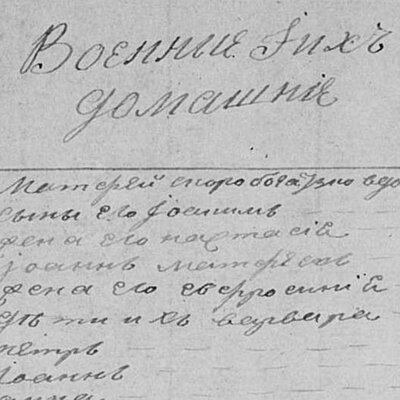 Военные Іихъ
домашніе
Матфей скоробогат вдо
сыны его Іоакимъ
жена его настасіе
Іоаннъ матфеевъ
жена его евфросиніе
дѣти ихъ варвара
петръ
Іоаннъ
анна